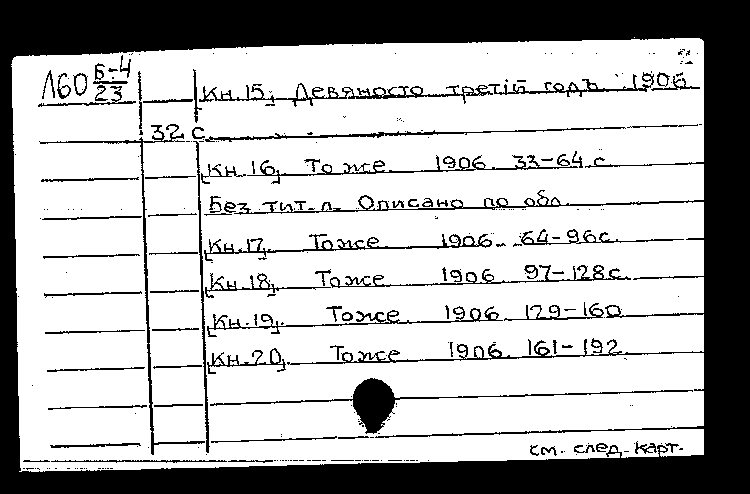 2
Л60 Б-4/23
Кн. 15; Девяносто третій годъ. 1906
32 с.
[Кн. 16]. То же. 1906. 33-64 с.
Без тит. л. Описано по обл.
[Кн. 17]. То же. 1906. 64-96 с.
[Кн. 18]. То же. 1906. 97-128 с.
[Кн. 19]. То же. 1906. 129-160
[Кн. 20]. То же. 1906. 161-192.
см. след. карт.